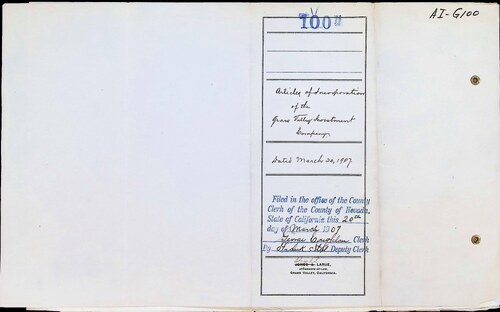 100
AI-G100
Articles of Incorporation
of the
Grass Valley Investment
Company.
Dated March 20, 1907
Filed in the office of the County
Clerk of the County of Nevada,
State of California this 20th
day of March 1907
Clerk
By Deputy Clerk
LARUE,
ATTORNEY-AT-LAW,
GRASS VALLEY, CALIFORNIA.